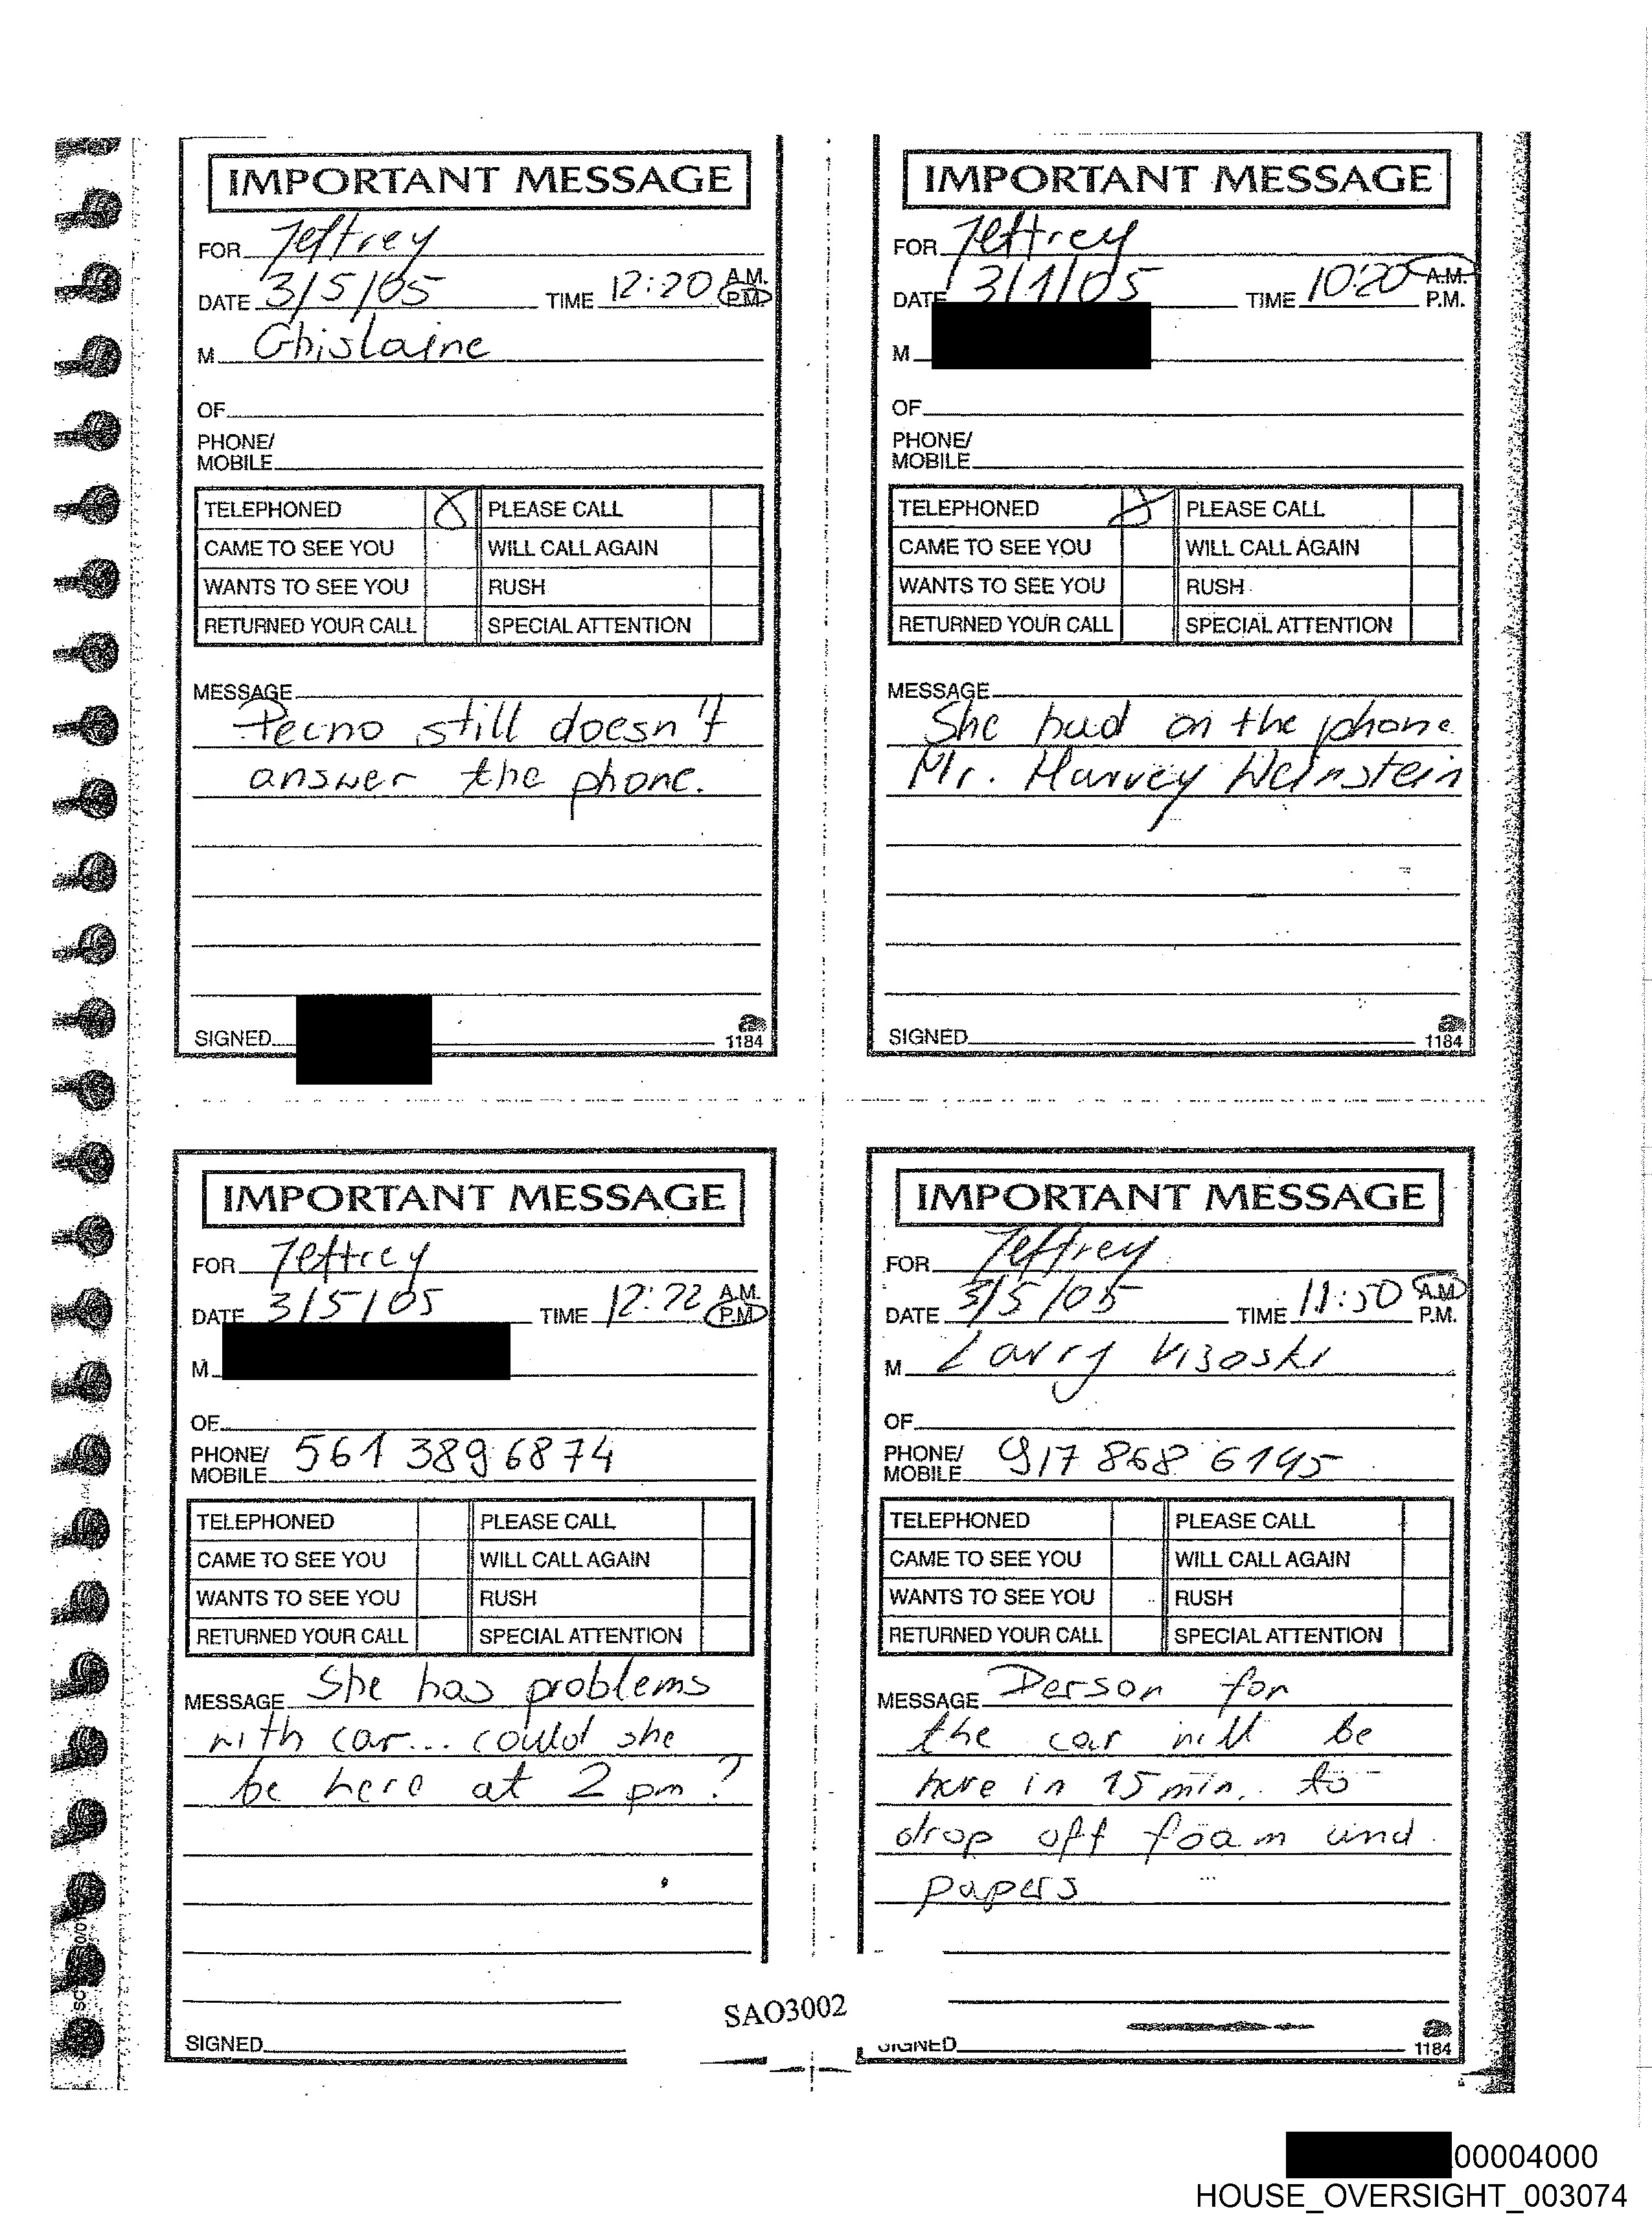 IMPORTANT MESSAGE
FOR Jeffrey
DATE 3/5/05 TIME 12:20 A.M.
P.M.
M Ghislaine
OF
PHONE/
MOBILE
TELEPHONED X PLEASE CALL
CAME TO SEE YOU WILL CALL AGAIN
WANTS TO SEE YOU RUSH
RETURNED YOUR CALL SPECIAL ATTENTION
MESSAGE
still doesn't
answer the phone.
SIGNED
1184
IMPORTANT MESSAGE
FOR Jeffrey
DATE 3/1/05 TIME 10:20 A.M.
P.M.
M
OF
PHONE/
MOBILE
TELEPHONED X PLEASE CALL
CAME TO SEE YOU WILL CALL AGAIN
WANTS TO SEE YOU RUSH
RETURNED YOUR CALL SPECIAL ATTENTION
MESSAGE
She had on the phone
Mr. Harvey Weinstein
SIGNED
1184
IMPORTANT MESSAGE
FOR Jeffrey
DATE 3/5/05 TIME 12:22 A.M.
P.M.
M
OF
PHONE/
MOBILE 561 389 6874
TELEPHONED PLEASE CALL
CAME TO SEE YOU WILL CALL AGAIN
WANTS TO SEE YOU RUSH
RETURNED YOUR CALL SPECIAL ATTENTION
MESSAGE She has problems
with car... could she
be here at 2 pm?
SIGNED
IMPORTANT MESSAGE
FOR Jeffrey
DATE 3/5/05 TIME 11:50 A.M.
P.M.
M Larry Visoski
OF
PHONE/
MOBILE 917 868 6195
TELEPHONED PLEASE CALL
CAME TO SEE YOU WILL CALL AGAIN
WANTS TO SEE YOU RUSH
RETURNED YOUR CALL SPECIAL ATTENTION
MESSAGE Person for
the car will be
here in 15 min. to
drop off foam and
papers
SIGNED
1184
SAO3002
00004000
HOUSE_OVERSIGHT_003074